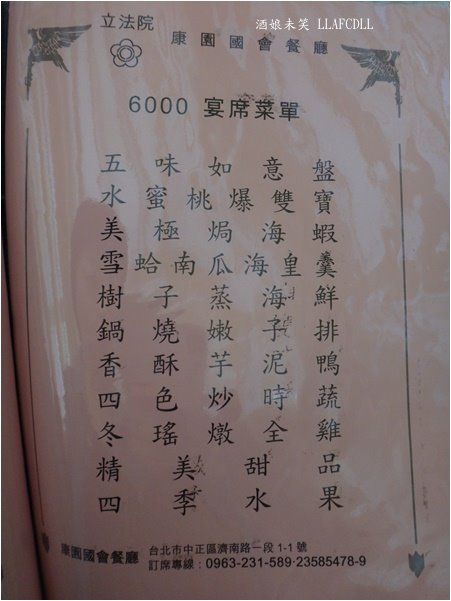 酒娘未笑 LLAFCDLL
立法院
康園國會餐廳
6000 宴席菜單
五味如意盤
水蜜桃爆雙寶
美極焗海蝦
雪蛤南瓜海皇羹
樹子蒸海鮮
鍋燒嫩子排
香酥芋泥鴨
四色炒時蔬
冬瑤燉全雞
精美甜品
四季水果
康園國會餐廳
台北市中正區濟南路一段 1-1 號
訂席專線：0963-231-589·23585478-9